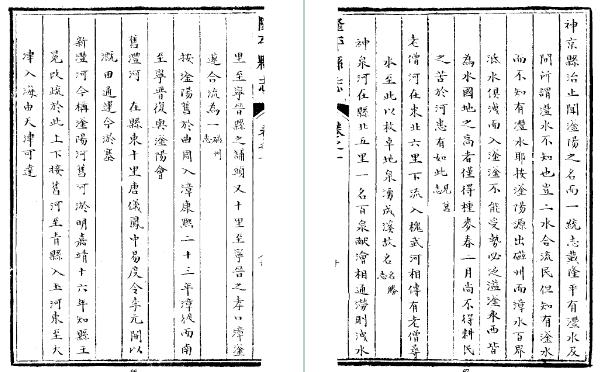 神京縣治止聞滏陽之名而一統志載隆平有灃水及
問所謂灃水不知也豈二水合流民但知有滏水
而不知有灃水耶按滏陽源出磁州而漳水百泉
泜水俱洩而入滏滏不能受勢必泛溢滏東西皆
為水國地之高者僅得種麥春二月尚不得耕民
之苦於河患有如此舊志
老僧河在東北六里下流入槐武河相傳有老僧尋
水至此以杖卓地泉湧成溪故名名勝志
神泉河在縣北五里一名百泉獻會相通澇則洩水
隆平縣志
卷之一
里至寧晉縣之鋪頭又十里至寧晉之孝口漳滏
遂合流為一磁州志
按滏陽舊於曲周入漳康熙二十三年漳徙西南
至寧晉復與滏陽會
舊灃河 在縣東十里唐儀鳳中易度令李元開以
溉田通運今淤塞
新灃河今稱滏陽河舊河淤明嘉靖十六年知縣王
冕改疏於此上下接舊河至青縣入上河東至天
津入海由天津可達